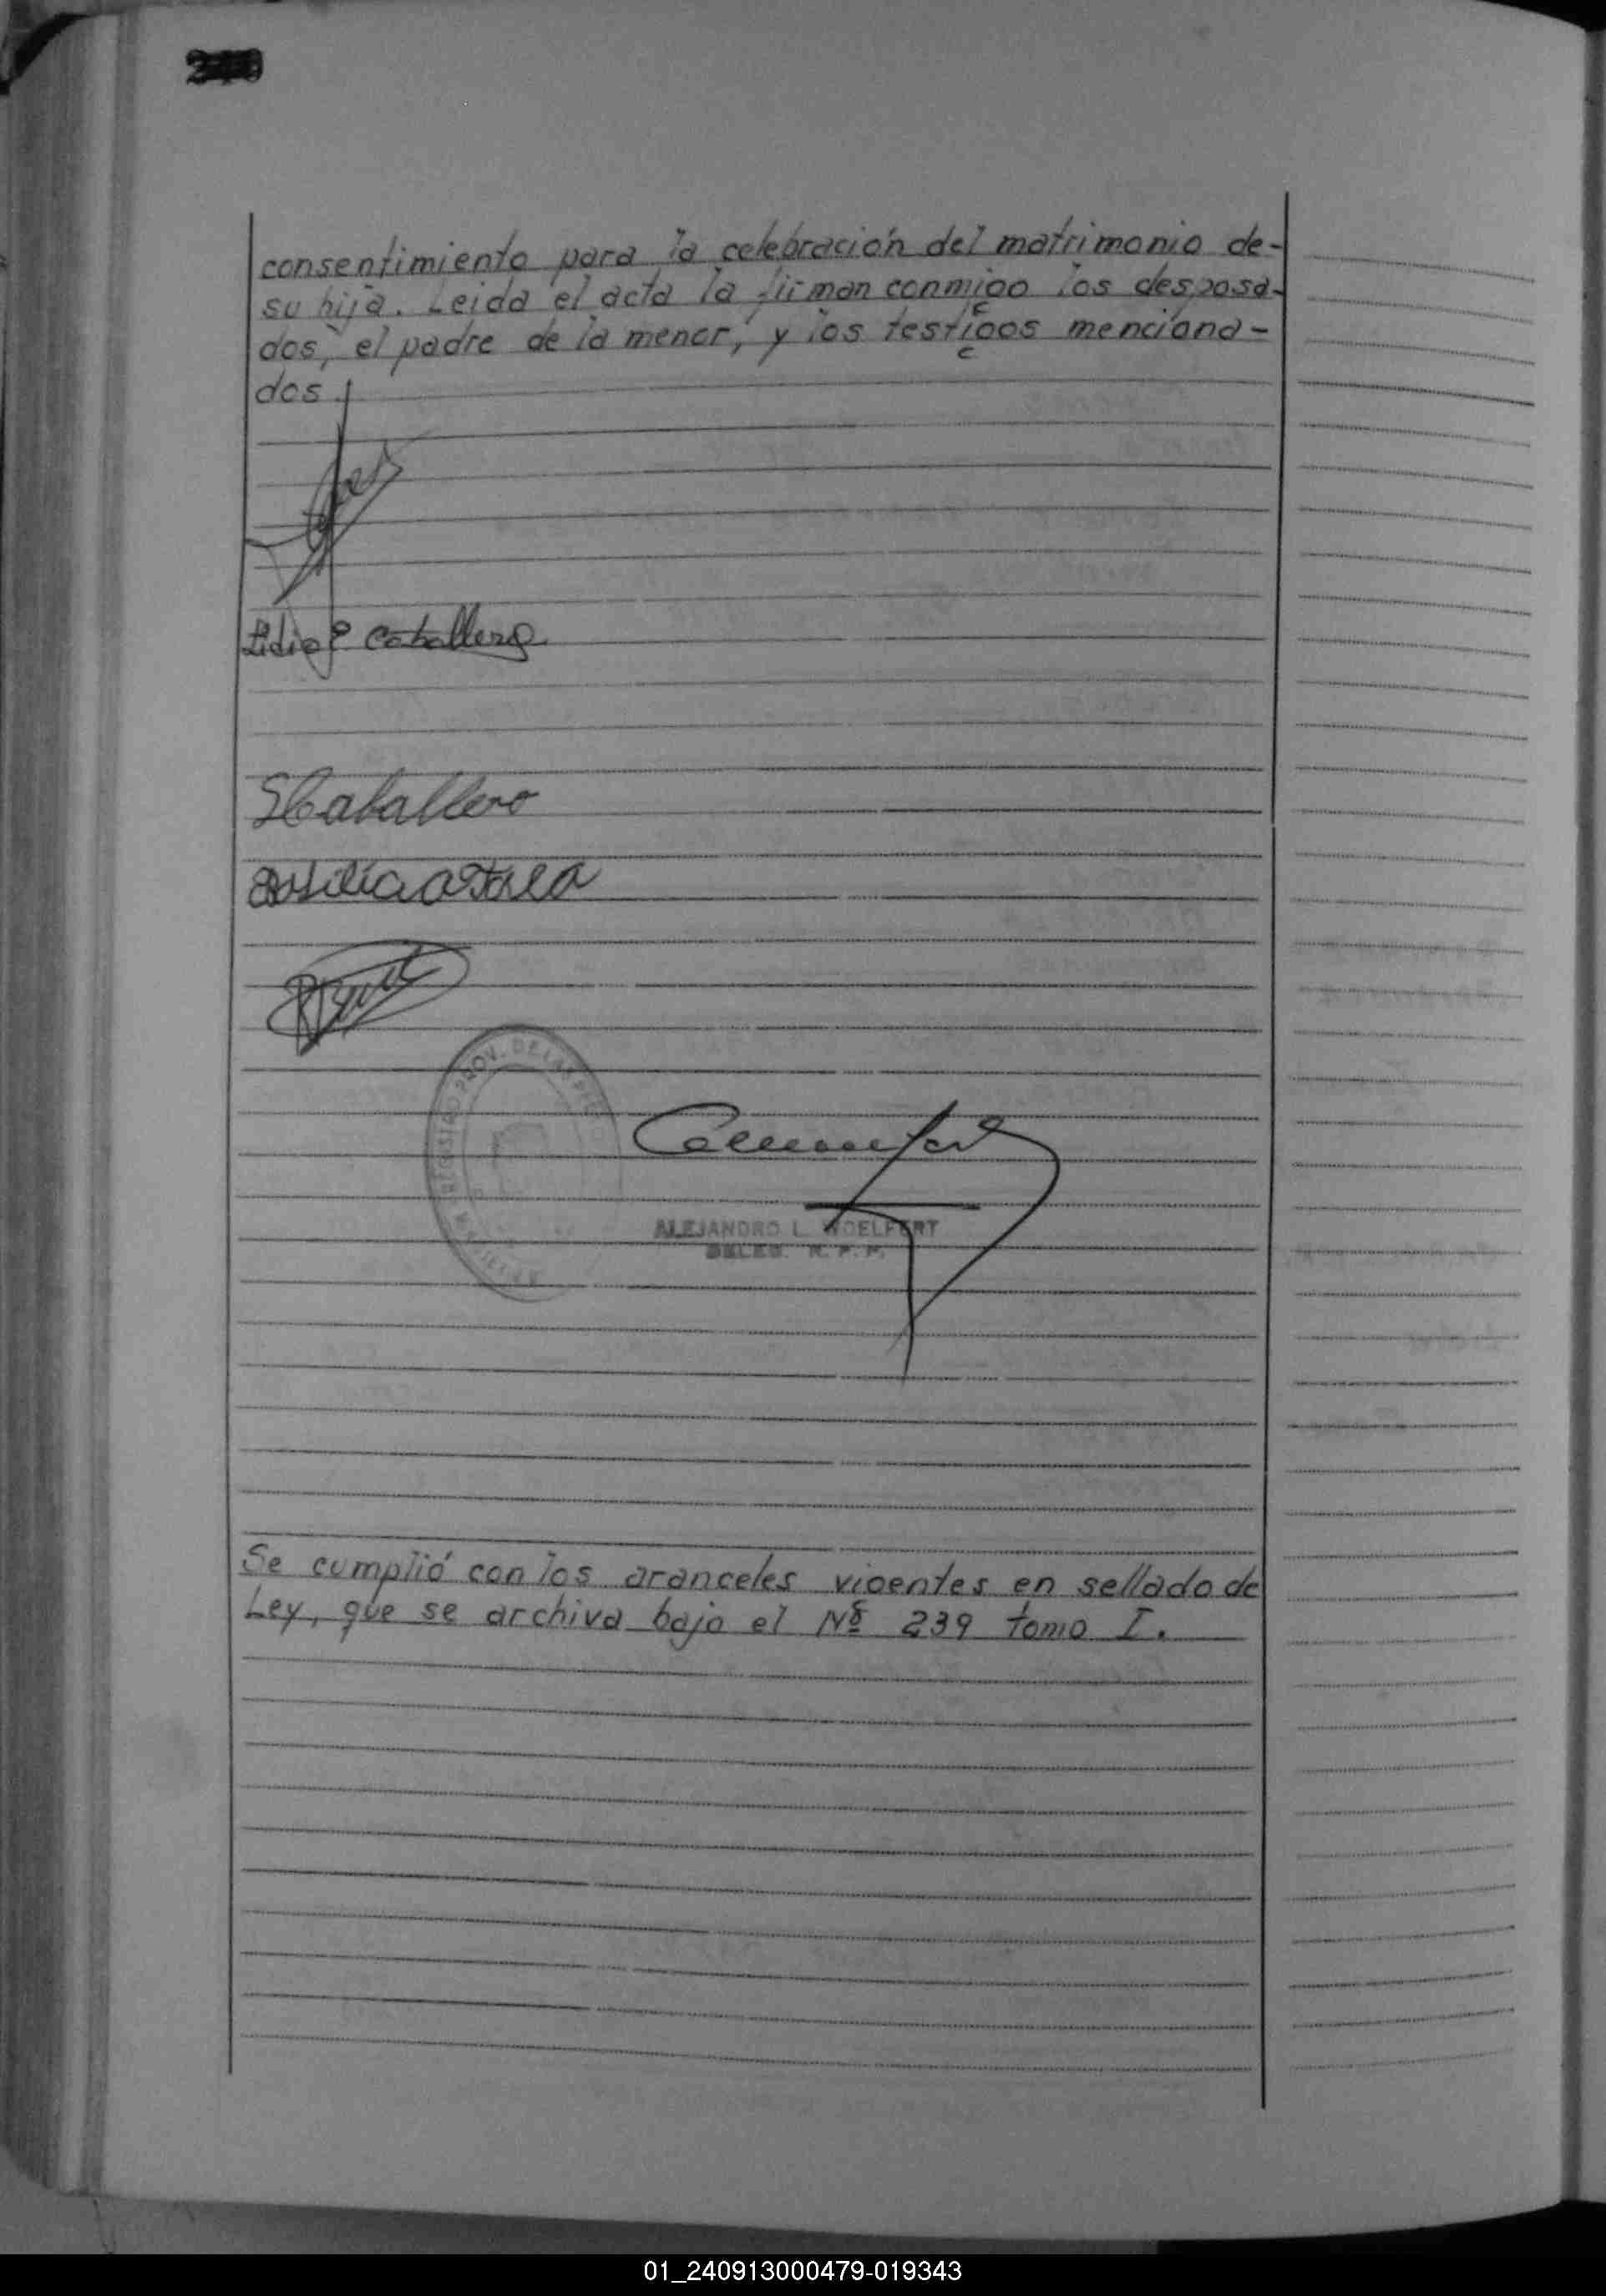 consentimiento para la celebración del matrimonio de-
su hija. Leida el acta la firman conmigo los desposa-
dos, el padre de la menor, y los testigos menciona-
dos.
Lidia E Caballero
SCaballero
PROV. DE LA
ALEJANDRO L. WOELFERT
DELEG. R. P. P.
Se cumplió con los aranceles vigentes en sellado de
Ley, que se archiva bajo el Nº 239 tomo I.
01_240913000479-019343